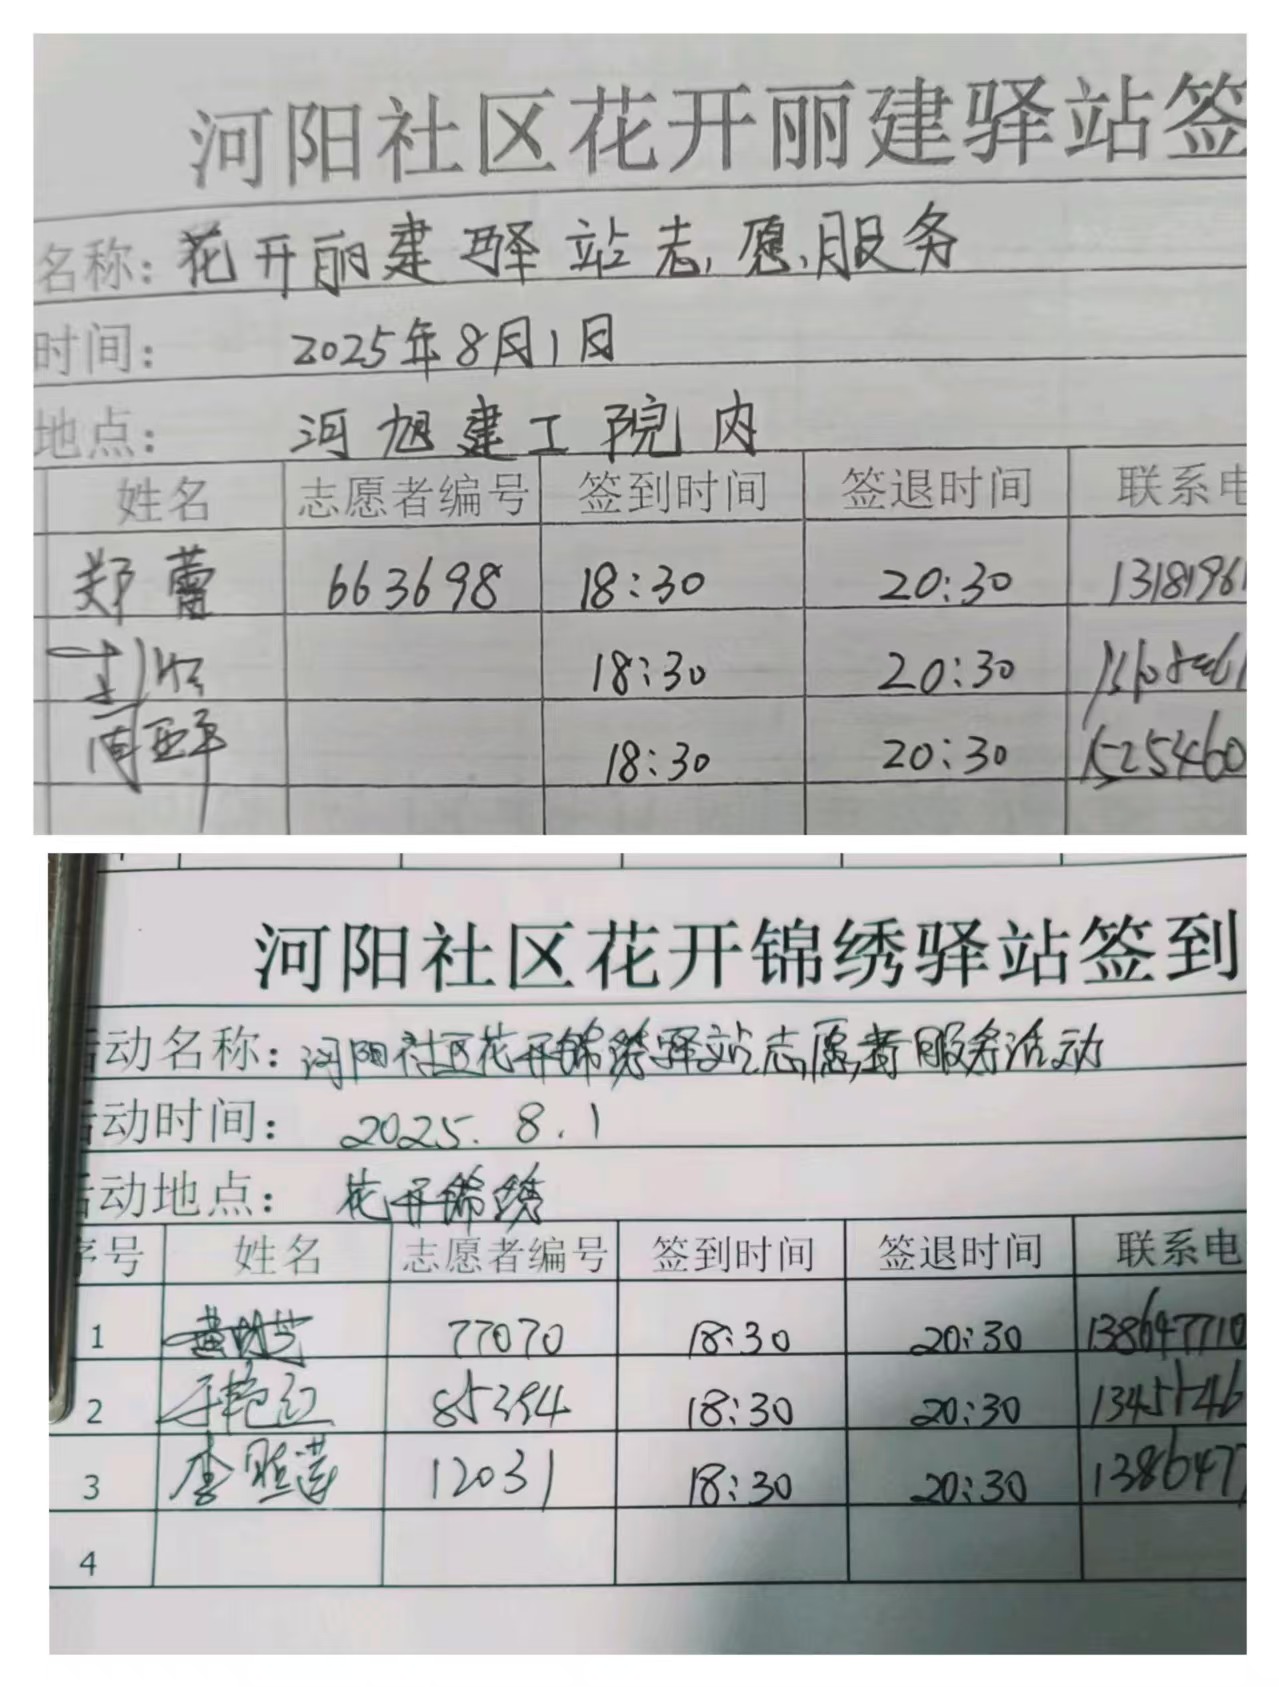 河阳社区花开丽建驿站签
名称：花开丽建驿站志愿服务
时间： 2025年8月1日
地点： 河旭建工院内
姓名 志愿者编号 签到时间 签退时间 联系电
郑蕾 663698 18:30 20:30 1318196
18:30 20:30
周亚平 18:30 20:30 1525460
河阳社区花开锦绣驿站签到
活动名称：河阳社区花开锦绣驿站志愿者服务活动
活动时间： 2025.8.1
活动地点： 花开锦绣
序号 姓名 志愿者编号 签到时间 签退时间 联系电
1 77070 18:30 20:30 138647710
2 于艳红 85394 18:30 20:30 1345146
3 李胜莲 12031 18:30 20:30 1386477
4